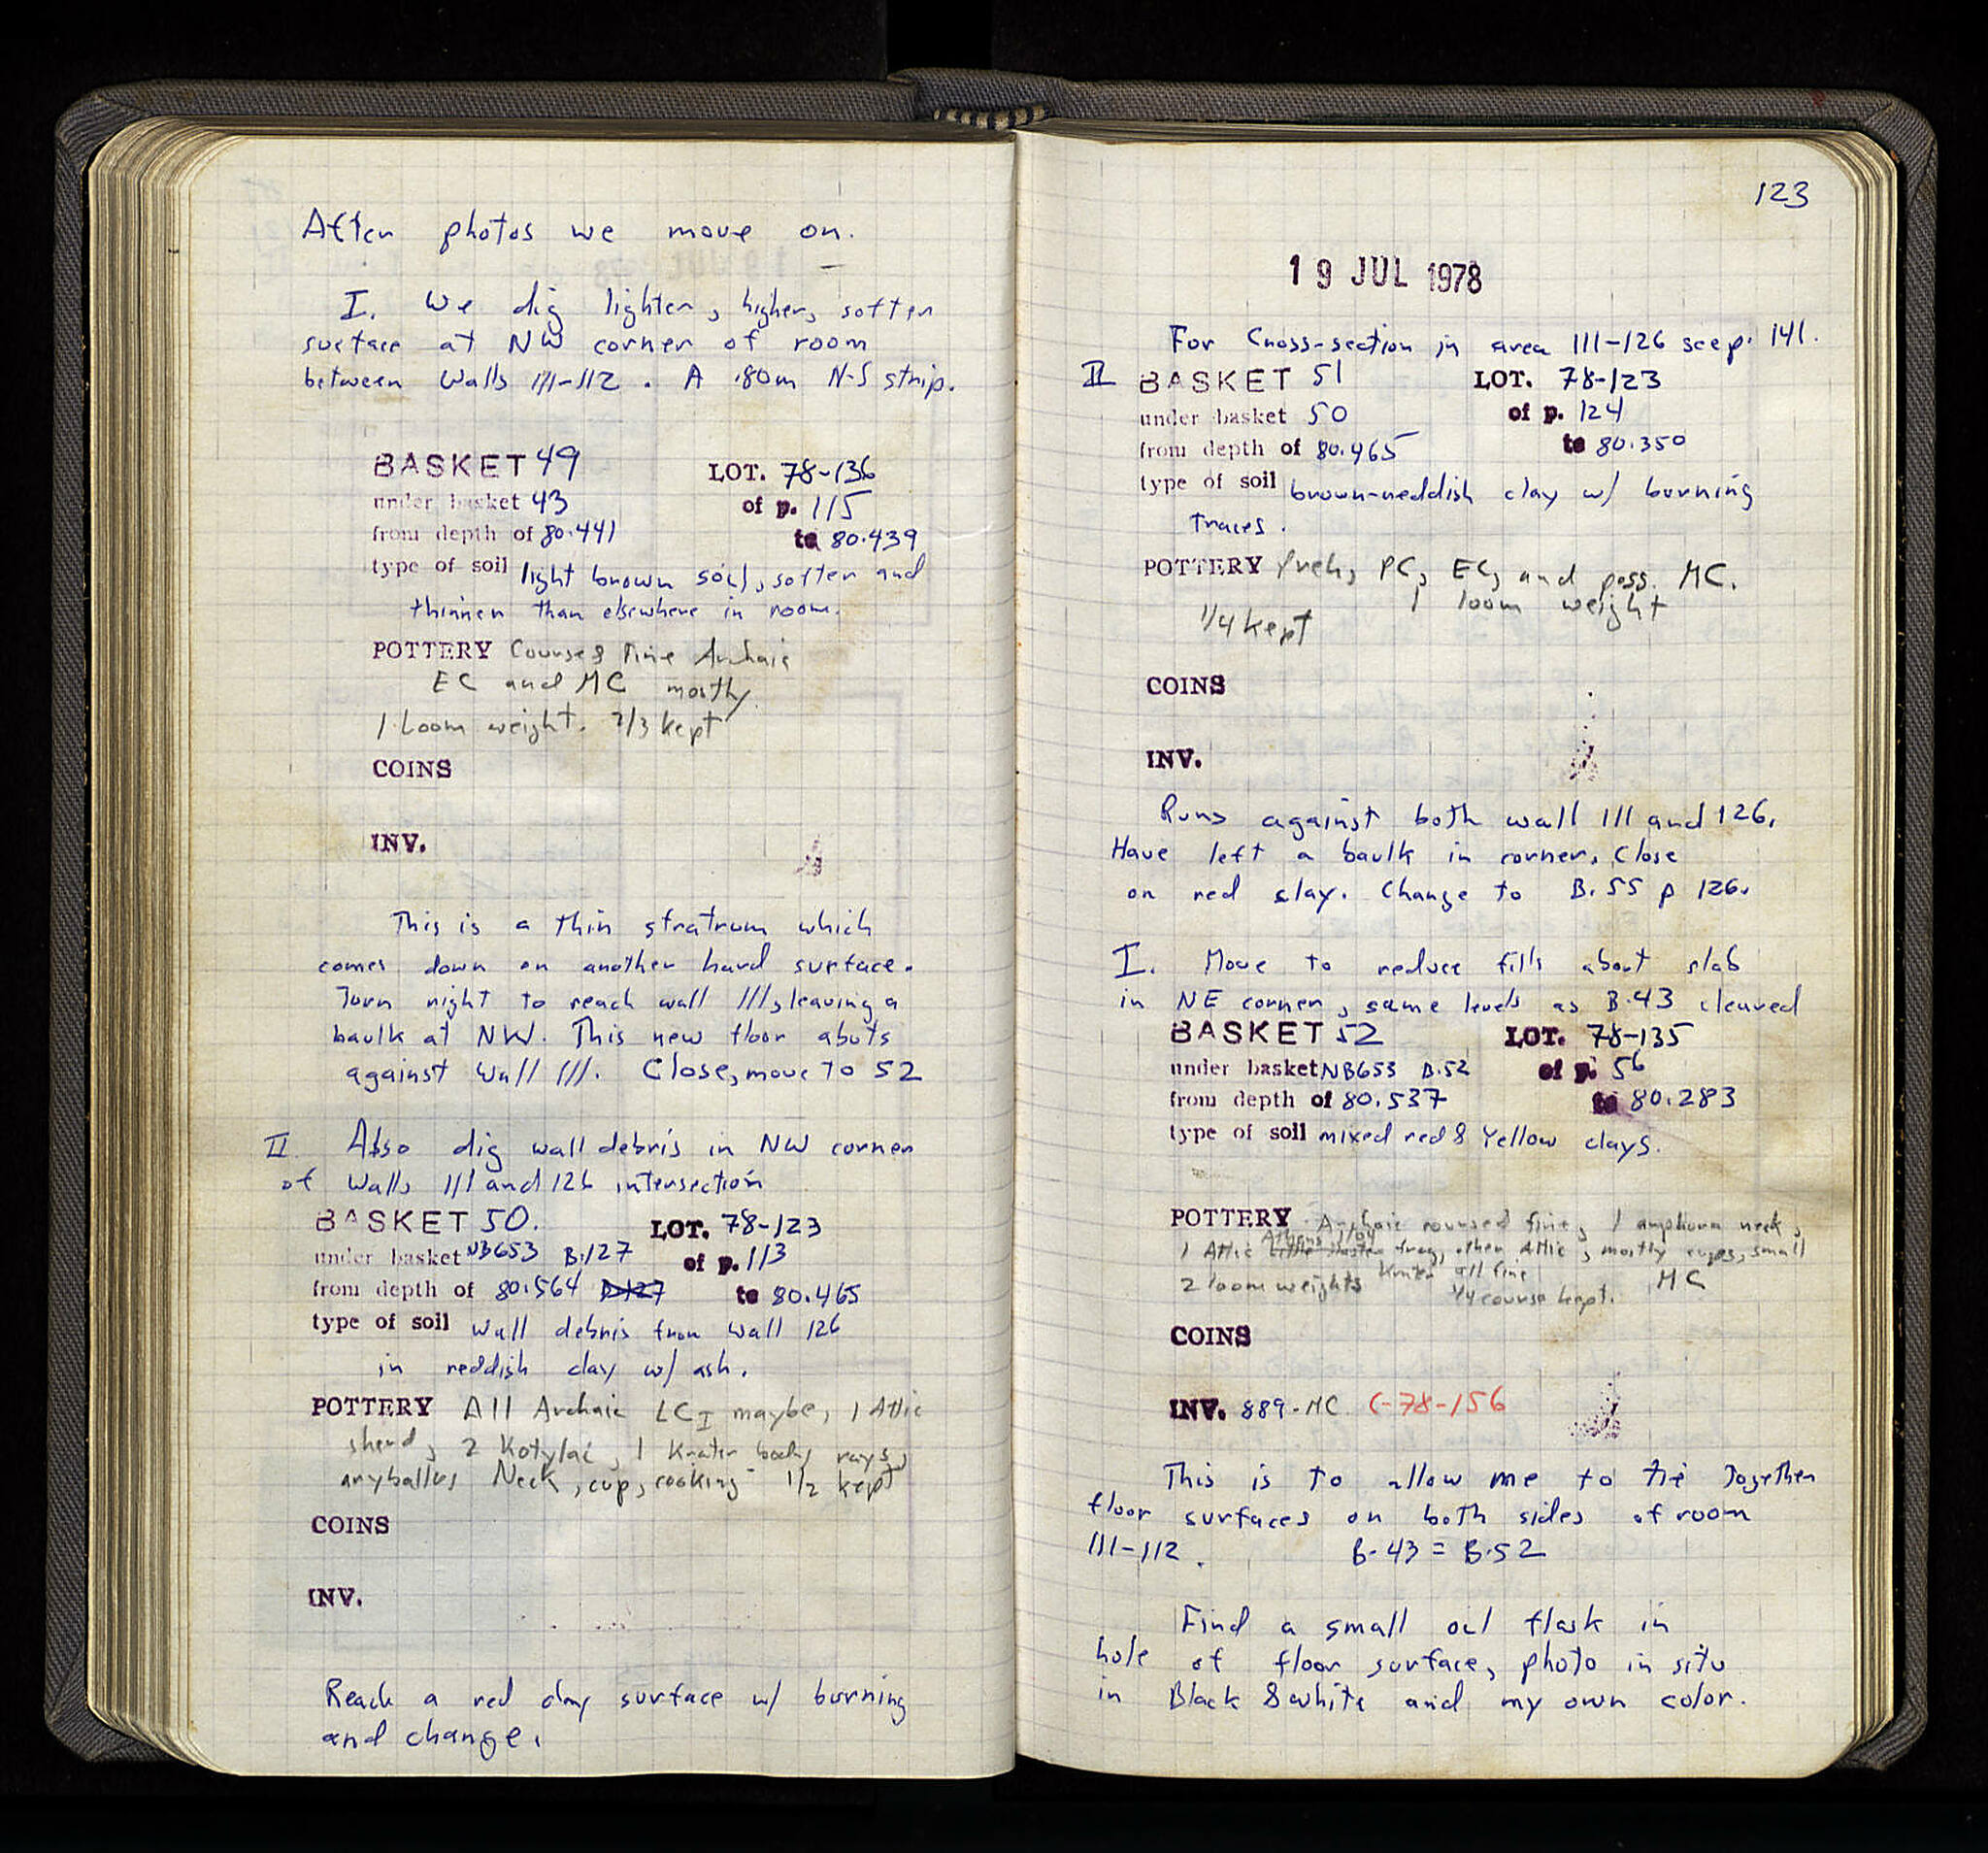 After photos we move on.
I. We dig lighter, higher, softer
surface at NW corner of room
between Walls 111-112. A .80m N-S strip.
BASKET 49 LOT. 78-136
under basket 43 of p. 115
from depth of 80.441 to 80.439
type of soil light brown soil, softer and
thinner than elsewhere in room.
POTTERY Course & Fine Archaic
EC and MC mostly
1 Loom weight. 2/3 kept
COINS
INV.
This is a thin stratum which
comes down on another hard surface.
Turn right to reach wall 111, leaving a
baulk at NW. This new floor abuts
against Wall 111. Close, move to 52
II Also dig wall debris in NW corner
of Walls 111 and 126 intersection
BASKET 50. LOT. 78-123
under basket NB653 B.127 of p. 113
from depth of 80.564 B.127 to 80.465
type of soil Wall debris from Wall 126
in reddish clay w/ ash.
POTTERY All Archaic LC I maybe, 1 Attic
sherd, 2 Kotylai, 1 Krater body, rays,
aryballos Neck, cup, cooking 1/2 kept
COINS
INV.
Reach a red clay surface w/ burning
and change.
123
19 JUL 1978
For Cross-section in area 111-126 see p. 141.
II BASKET 51 LOT. 78-123
under basket 50 of p. 124
from depth of 80.465 to 80.350
type of soil brown-reddish clay w/ burning
traces.
POTTERY PC, EC, and poss. MC.
1 loom weight
1/4 kept
COINS
INV.
Runs against both wall 111 and 126.
Have left a baulk in corner. Close
on red clay. Change to B.55 p 126.
I. Move to reduce fills about slab
in NE corner, same levels as B.43 cleared
BASKET 52 LOT. 78-135
under basket NB653 B.52 of p. 56
from depth of 80.537 to 80.283
type of soil mixed red & Yellow clays.
POTTERY Archaic course & fine, 1 amphora neck,
1 Attic frag, other Attic, mostly cups, small
2 loom weights Krater all fine MC
1/4 course kept.
COINS
INV. 889-MC C-78-156
This is to allow me to tie together
floor surfaces on both sides of room
111-112. B.43 = B.52
Find a small oil flask in
hole of floor surface, photo in situ
in Black & white and my own color.